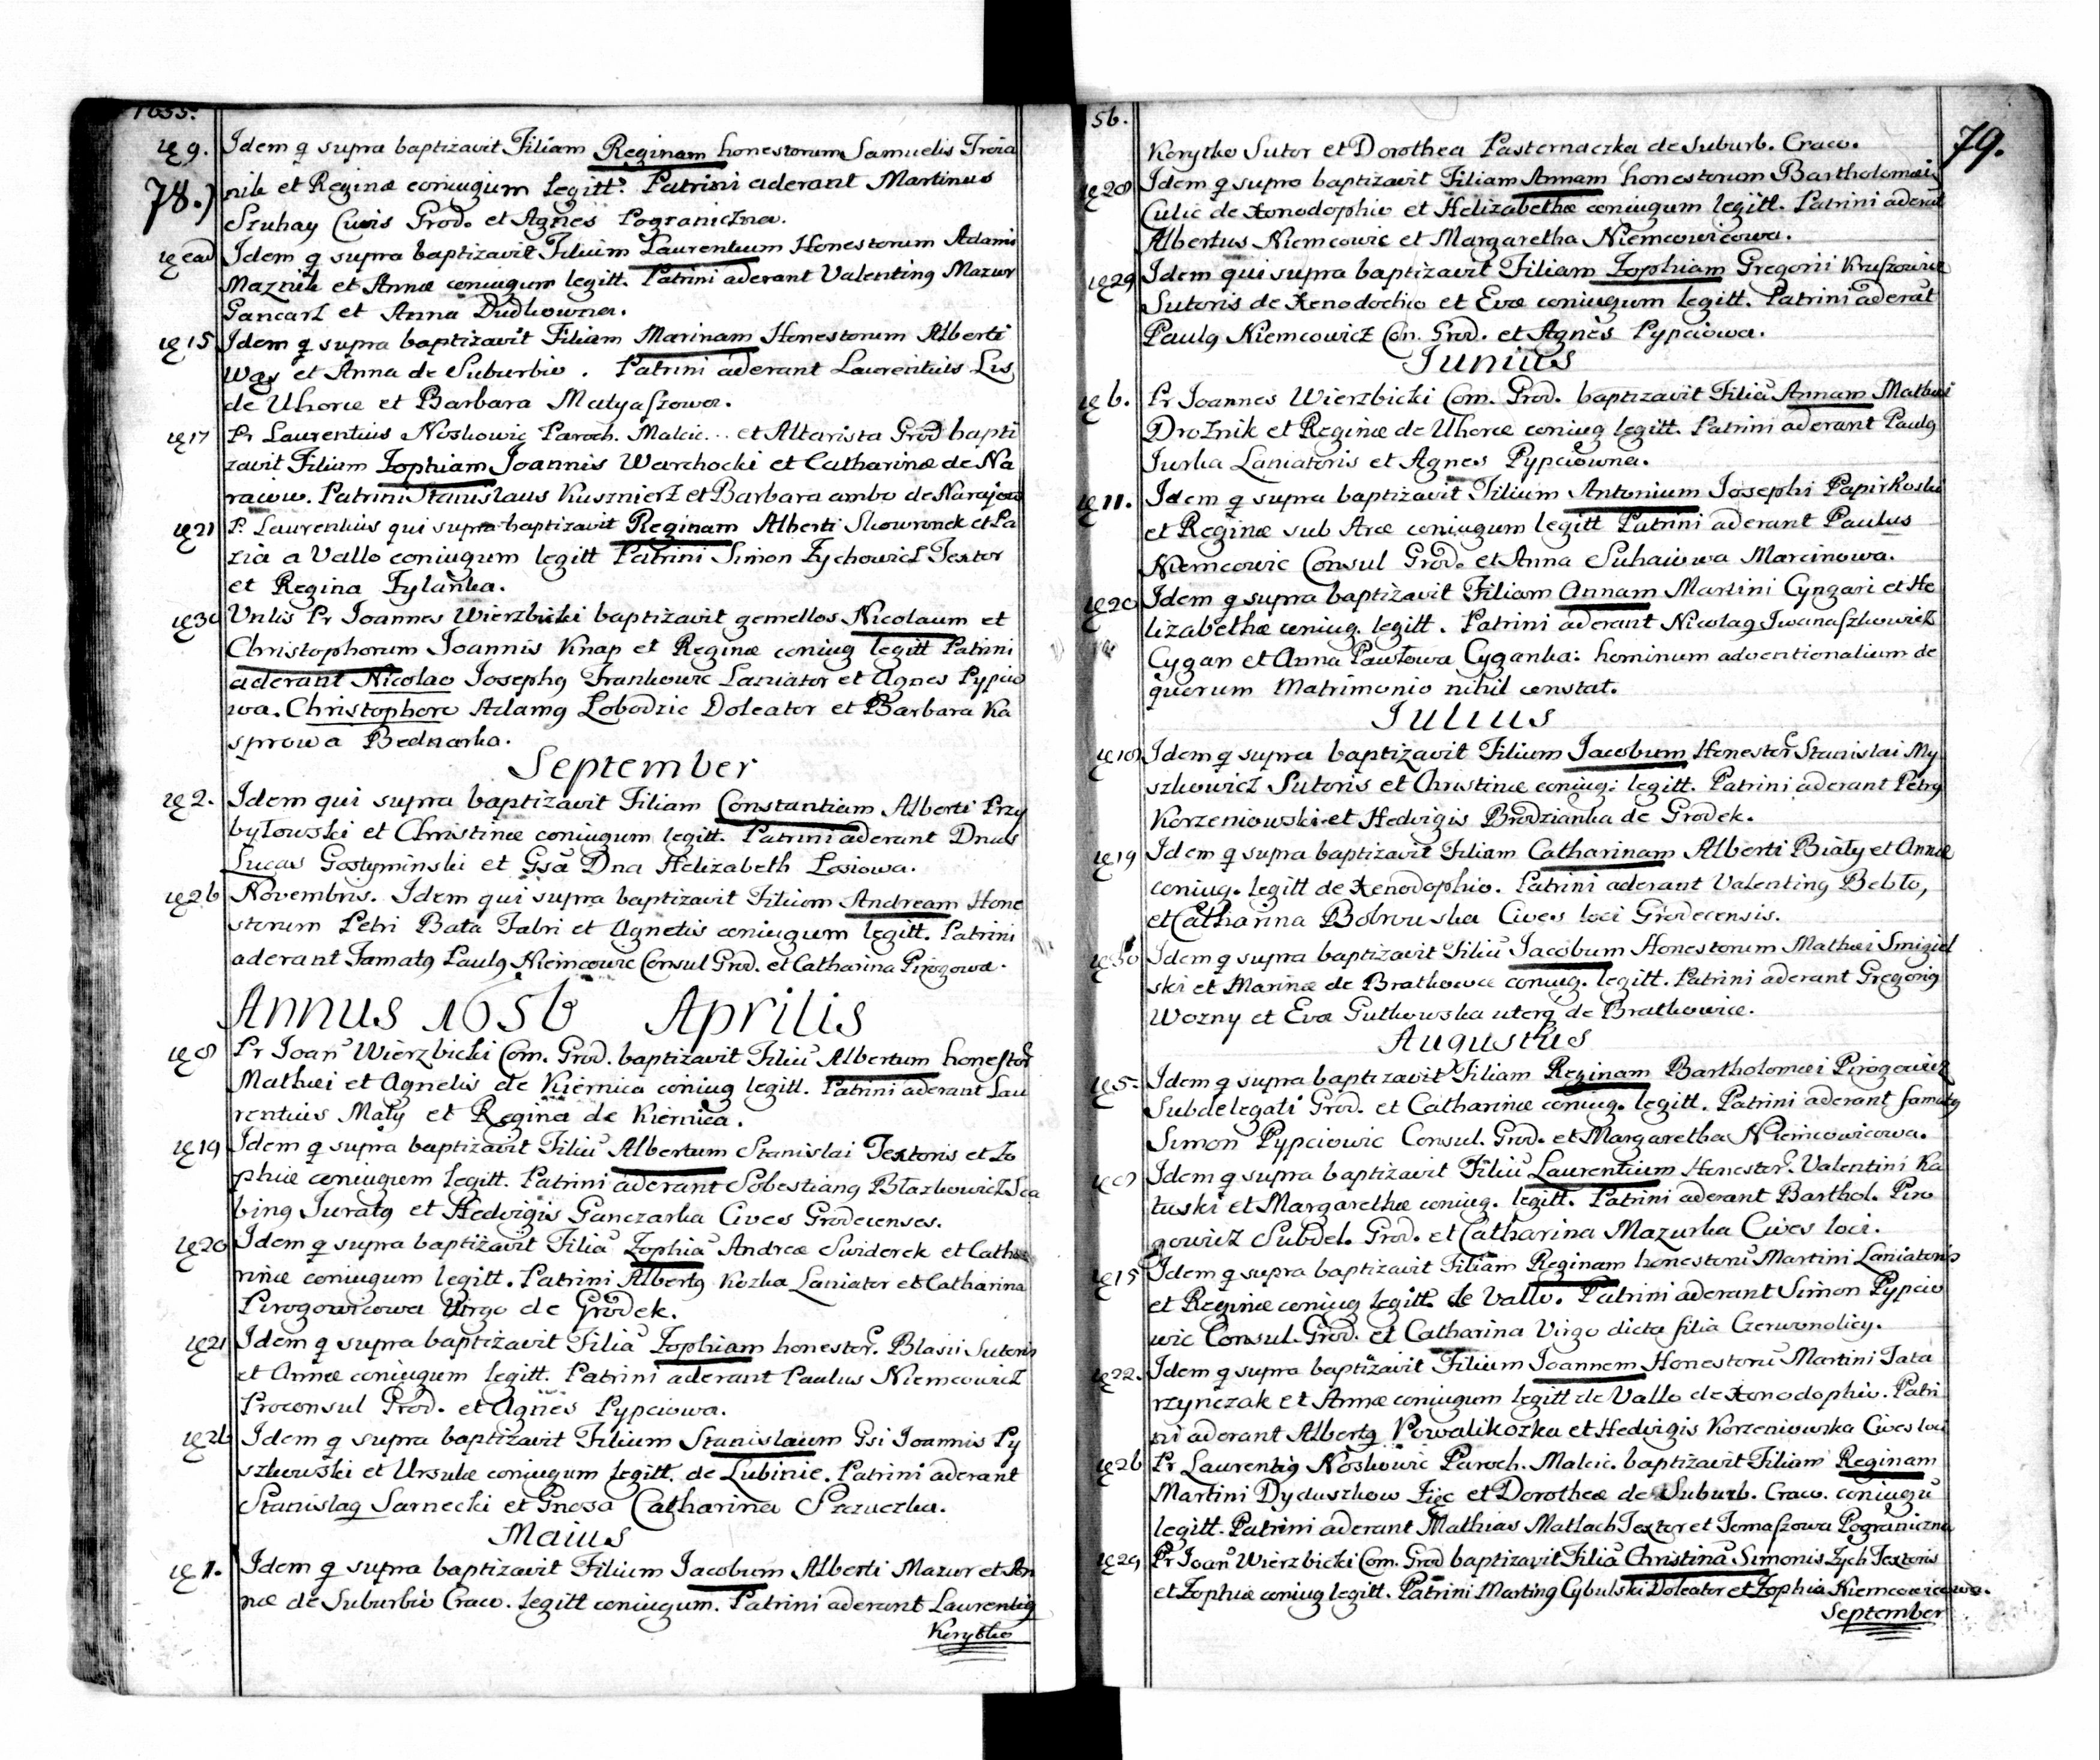 1655.
78.)
9. Idem q supra baptizavit Filiam Reginam honestorum Samuelis Troia
nik et Reginæ coniugum legitt. Patrini aderant Martinus
Szuhay Civis Grod. et Agnes Pograniczna.
ead Idem q supra baptizavit Filium Laurentium Honestorum Adami
Maznik et Annæ coniugum legitt. Patrini aderant Valentinq Mazur
Gancarz et Anna Dudkowna.
15 Idem q supra baptizavit Filiam Marinam Honestorum Alberti
Wąs et Anna de Suburbio. Patrini aderant Laurentius Lis
de Uhorce et Barbara Matyaszowa.
17 Pr Laurentius Noskowic Paroch. Malcic... et Altarista Grod bapti
zavit Filium Zophiam Joannis Warchocki et Catharinæ de Na
raiow. Patrini Stanislaus Kusznierz et Barbara ambo de Narajow
21 P. Laurentius qui supra baptizavit Reginam Alberti Skowronek et Pa
zia a Vallo coniugum legitt Patrini Simon Zychowicz Textor
et Regina Zylanka.
30 Vnlis Pr Joannes Wierzbicki baptizavit gemellos Nicolaum et
Christophorum Joannis Knap et Reginæ coniug legitt Patrini
aderant Nicolao Josephq Frankowic Laniator et Agnes Pypcio
wa. Christophoro Adamq Lobodzic Doleator et Barbara Ka
sprowa Bednarka.
September
2. Idem qui supra baptizavit Filiam Constantiam Alberti Przy
byłowski et Christinæ coniugum legitt. Patrini aderant Dnus
Lucas Gostyminski et Gsa Dna Helizabeth Losiowa.
26 Novembris. Idem qui supra baptizavit Filium Andream Hone
storum Petri Bata Fabri et Agnetis coniugum legitt. Patrini
aderant Famatq Paulq Niemcowic Consul Grod. et Catharina Pirogowa.
Annus 1656 Aprilis
8 Pr Joan Wierzbicki Com. Grod. baptizavit Filiu Albertum honestor
Mathæi et Agnetis de Kiernica coniug legitt. Patrini aderant Lau
rentius Mały et Regina de Kiernica.
19 Idem q supra baptizavit Filiu Albertum Stanislai Textoris et Zo
phiæ coniugum legitt. Patrini aderant Sobestianq Błazkowicz Sca
binq Juratq et Hedvigis Ganczarka Cives Grodecenses.
20 Idem q supra baptizavit Filia Zophia Andreæ Swiderek et Catha
rinæ coniugum legitt. Patrini Albertq Kozka Laniator et Catharina
Pirogowicowa Virgo de Grodek.
21 Idem q supra baptizavit Filia Zophiam honestor. Blasii Sutoris
et Annæ coniugum legitt. Patrini aderant Paulus Niemcowicz
Proconsul Grod. et Agnes Pypciowa.
26 Idem q supra baptizavit Filium Stanislaum Gsi Joannis Py
szkowski et Ursulæ coniugum legitt. de Lubinie. Patrini aderant
Stanislaq Sarnecki et Gnosa Catharina Szczuczka.
Maius
1. Idem q supra baptizavit Filium Jacobum Alberti Mazur et An
næ de Suburbio Crac. legitt coniugum. Patrini aderant Laurentiq
Korytko
56.
79.
Korytko Sutor et Dorothea Pasternaczka de Suburb. Crac.
20 Idem q supra baptizavit Filiam Annam honestorum Bartholomæi
Culic de Xenodophio et Helizabethæ coniugum legitt. Patrini aderat
Albertus Niemcowic et Margaretha Niemcowicowa.
29 Idem qui supra baptizavit Filiam Zophiam Gregorii Kruszowic
Sutoris de Xenodochio et Evæ coniugum legitt. Patrini aderat
Paulq Niemcowicz Con. Grod. et Agnes Pypciowa.
Junius
6. Pr Joannes Wierzbicki Com. Grod. baptizavit Filia Annam Mathæi
Drożnik et Reginæ de Uhorce coniug legitt. Patrini aderant Paulq
Jurka Laniatoris et Agnes Pypciowna.
11. Idem q supra baptizavit Filium Antonium Josephi Papirkoski
et Reginæ sub Arce coniugum legitt Patrini aderant Paulus
Niemcowic Consul Grod. et Anna Suhaiowa Marcinowa.
20 Idem q supra baptizavit Filiam Annam Martini Cyngari et He
lizabethæ coniug. legitt. Patrini aderant Nicolaq Iwanaszkowicz
Cygan et Anna Pawłowa Cyganka: hominum adventionalium de
quorum Matrimonio nihil constat.
Julius
10 Idem q supra baptizavit Filium Jacobum Honestor Stanislai My
szkowicz Sutoris et Christinæ coniug: legitt. Patrini aderant Petrq
Korzeniowski et Hedvigis Brodzianka de Grodek.
19 Idem q supra baptizavit Filiam Catharinam Alberti Biały et Annæ
coniug. legitt de Xenodophio. Patrini aderant Valentinq Bebło,
et Catharina Bobrowska Cives loci Grodecensis.
30 Idem q supra baptizavit Filiu Jacobum Honestorum Mathæi Smigiel
ski et Marinæ de Bratkowce coniug. legitt. Patrini aderant Gregoriq
Wozny et Eva Gutkowska uterq de Bratkowice.
Augustus
5. Idem q supra baptizavit Filiam Reginam Bartholomæi Pirogowicz
Subdelegati Grod. et Catharinæ coniug. legitt. Patrini aderant famatq
Simon Pypciowic Consul. Grod. et Margaretha Niemcowicowa.
Idem q supra baptizavit Filiu Laurentium Honestor. Valentini Ka
łuski et Margarethæ coniug. legitt. Patrini aderant Barthol. Piro
gowicz Subdel. Grod. et Catharina Mazurka Cives loci.
15 Idem q supra baptizavit Filiam Reginam honestoru Martini Laniatoris
et Reginæ coniug legitt. de Vallo. Patrini aderant Simon Pypcio
wic Consul. Grod. et Catharina Virgo dicta filia Czerwonolicy.
22. Idem q supra baptizavit Filium Joannem Honestoru Martini Tata
rzynczak et Annæ coniugum legitt de Vallo de Xenodophio. Patri
ni aderant Albertq Powalikozka et Hedvigis Korzeniowska Cives loci
26 Pr Laurentiq Noskowic Paroch. Malcic. baptizavit Filiam Reginam
Martini Dyduszkow Zięc et Dorotheæ de Suburb. Crac. coniugu
legitt. Patrini aderant Mathias Matlach Textor et Tomaszowa Pograniczna
29 Pr Joan Wierzbicki Com. Grod baptizavit Filia Christina Simonis Zych Textoris
et Zophiæ coniug legitt. Patrini Martinq Cybulski Doleator et Zophia Niemcowicowa.
September